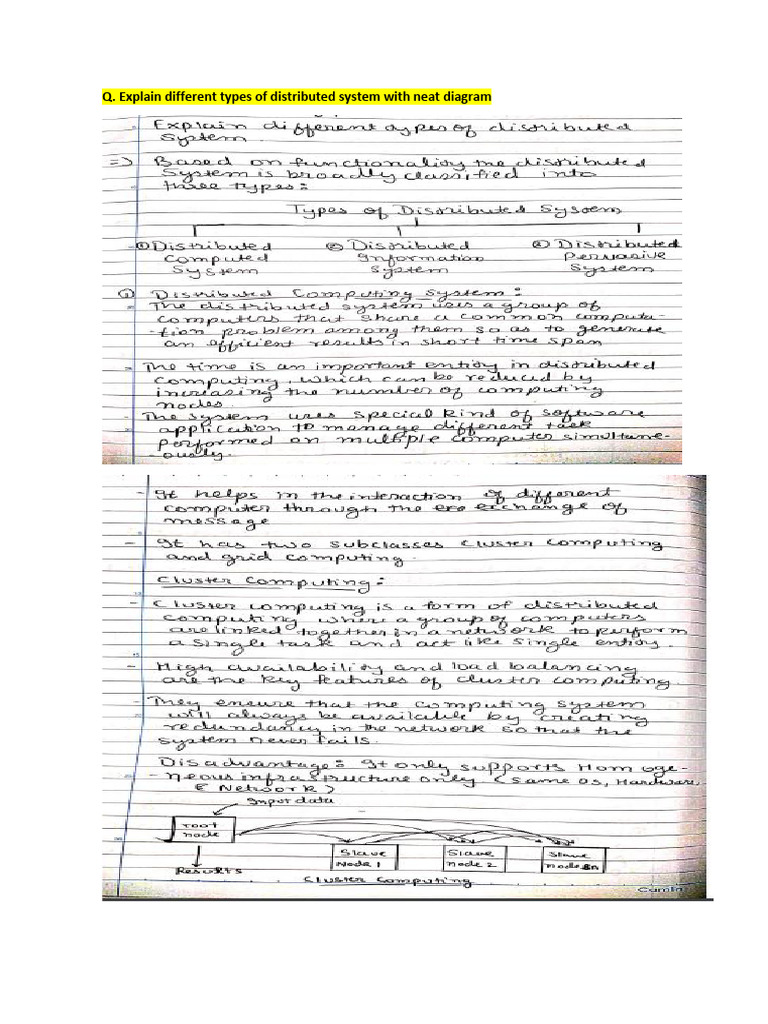 Q. Explain different types of distributed system with neat diagram
- Explain different types of distributed
system.
=> Based on functionality the distributed
system is broadly classified into
three types:
Types of Distributed System
① Distributed Computed System
② Distributed Information System
③ Distributed Pervasive System
① Distributed Computing System:
- The distributed system uses a group of
computers that share a common computa-
-tion problem among them so as to generate
an efficient results in short time span
- The time is an important entity in distributed
computing, which can be reduced by
increasing the number of computing
nodes.
- The system uses special kind of software
application to manage different task
performed on multiple computer simultane-
-ously.
- It helps in the interaction of different
computer through the exchange of
message
- It has two subclasses cluster computing
and grid computing.
Cluster Computing:
- Cluster computing is a form of distributed
computing where a group of computers
are linked together in a network to perform
a single task and act like single entity.
- High availability and load balancing
are the key features of cluster computing.
- They ensure that the computing system
will always be available by creating
redundancy in the network so that the
system never fails.
Disadvantage: It only supports Homoge-
-neous infrastructure only (same os, Hardware,
& Network)
Input data
root
node
Slave
Node 1
Slave
node 2
Slave
node n
Results
Cluster Computing
Camlin